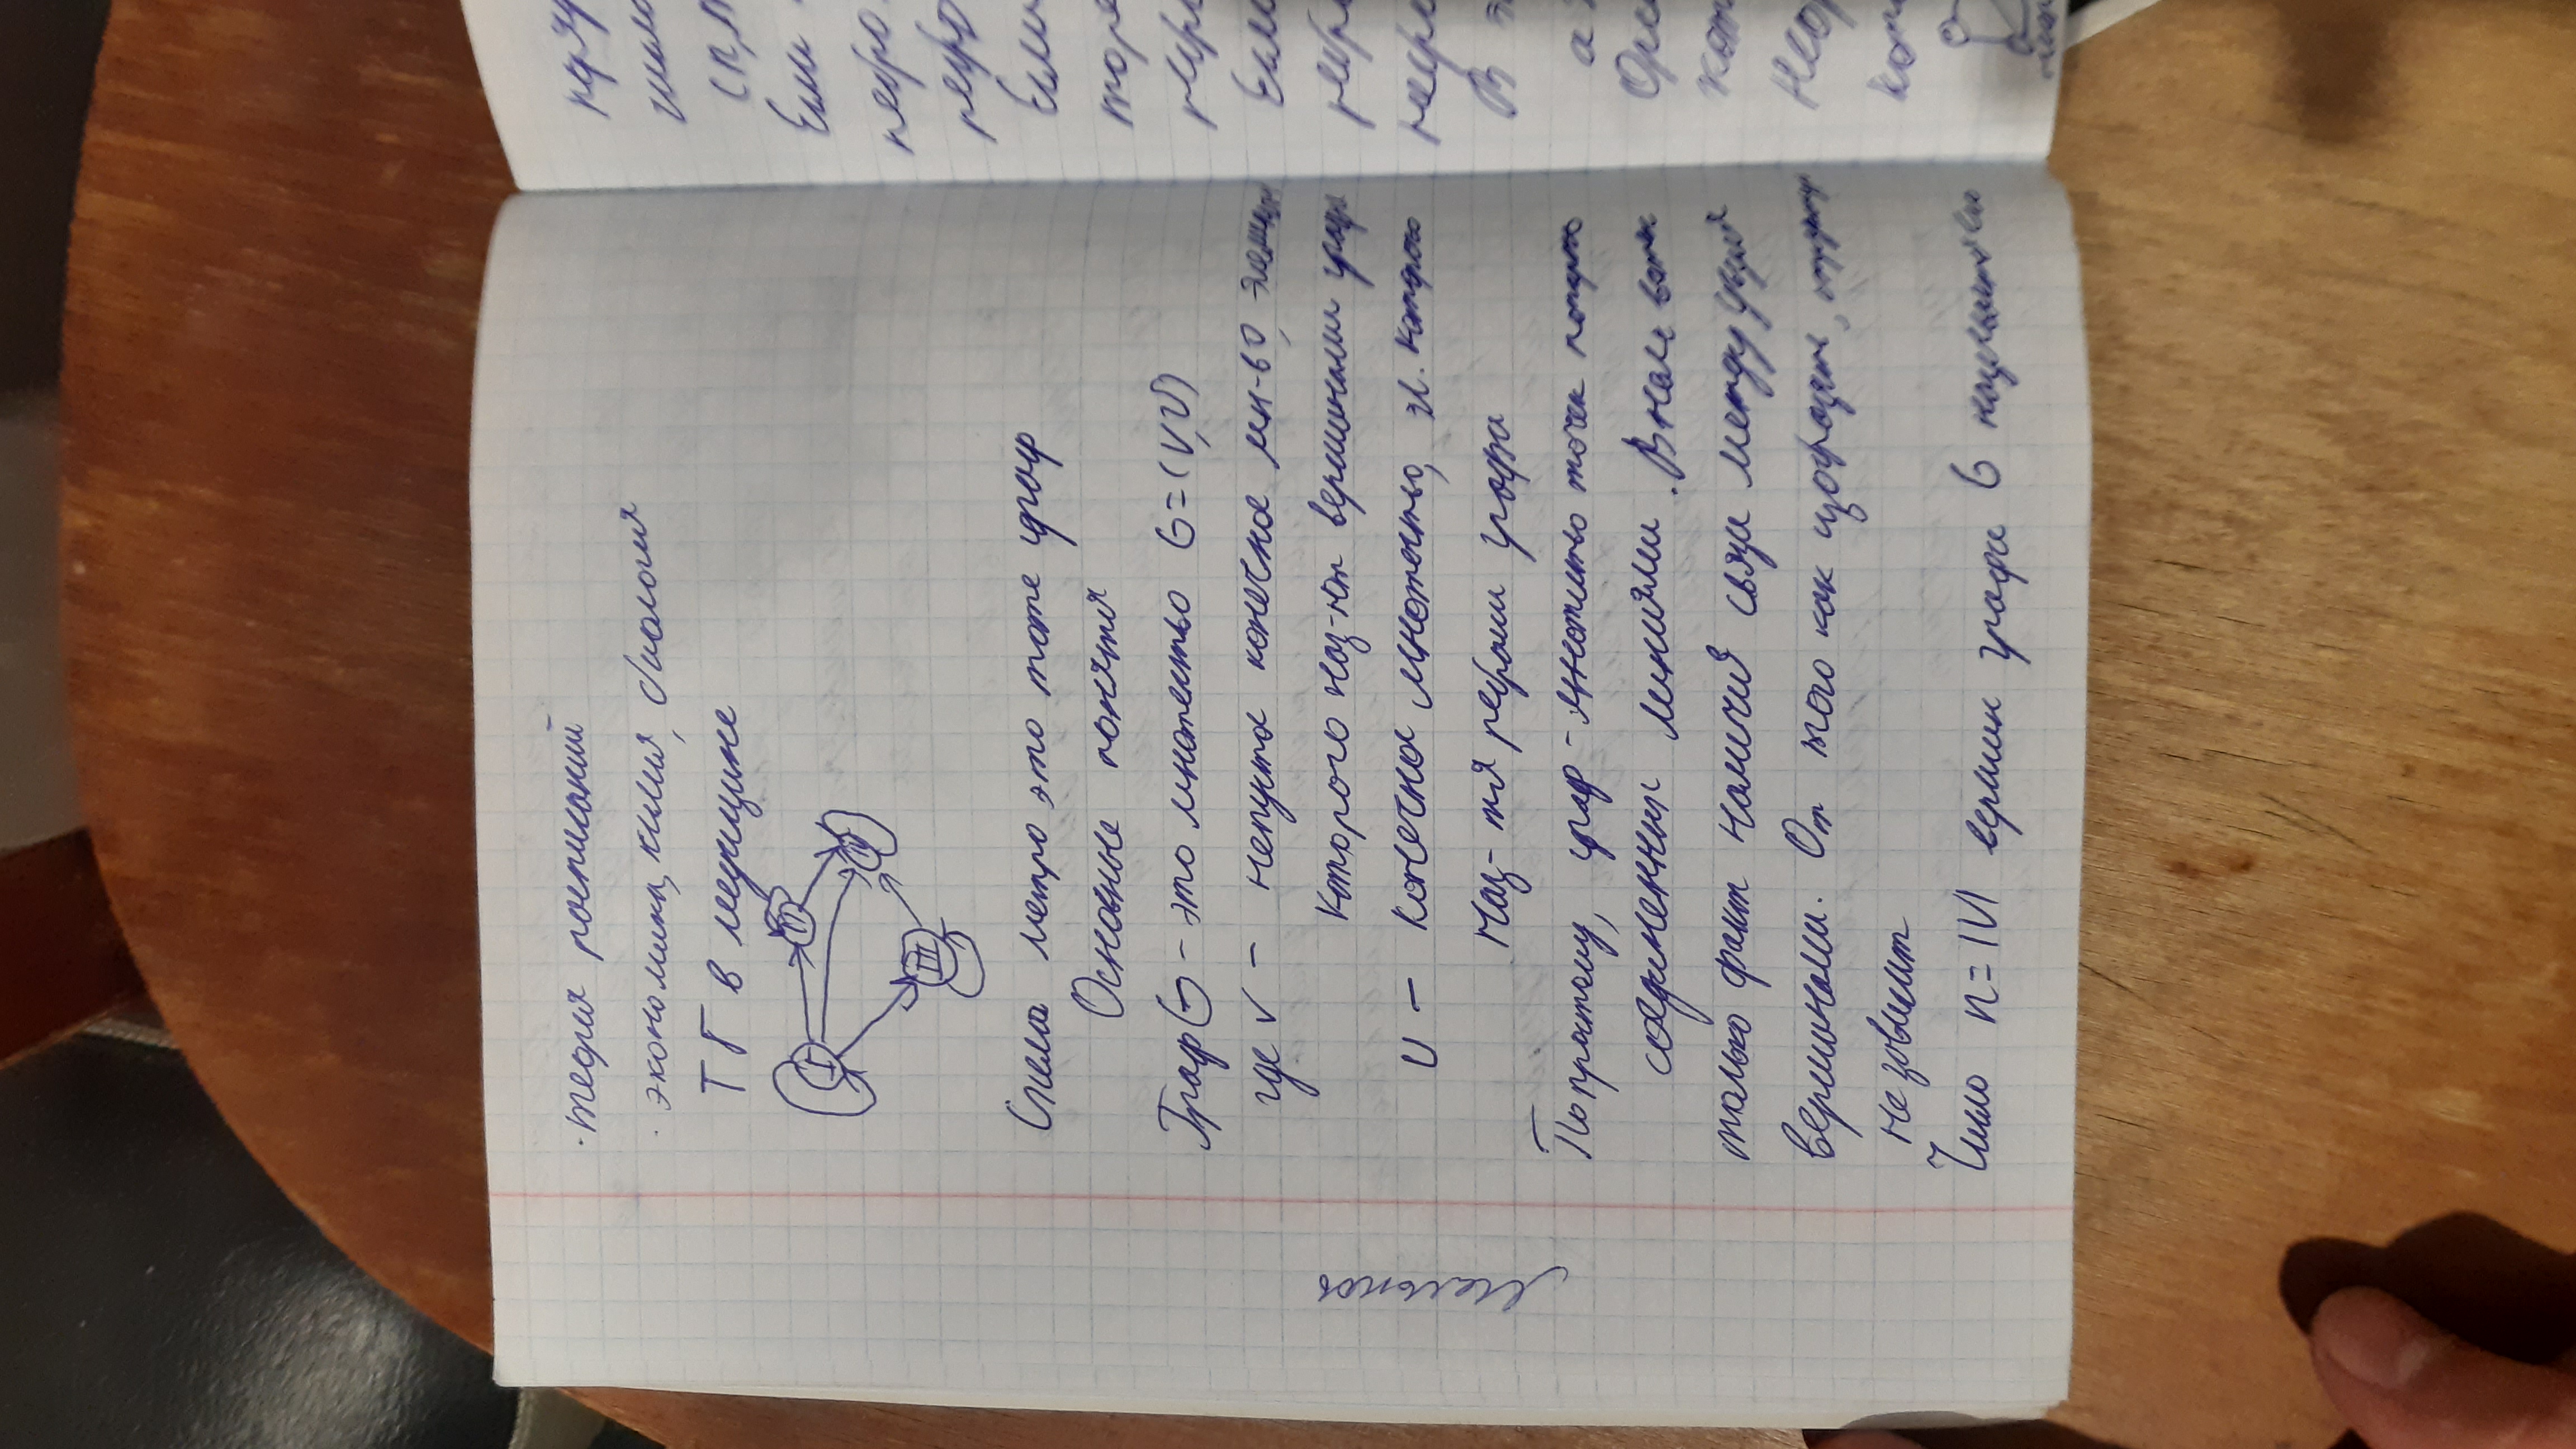 · теория расписаний
· экономика, химия, биология
ТГ в медицине
I
II
IV
III
Схема метро это тоже граф
Основные понятия
Граф G - это множество G=(V,U)
где V - непустое конечное мн-во,
которого наз-ют вершинами графа
U - конечное множество, эл. которого
наз-тя ребрами графа
По простому, граф - множество точек попарно
соединенных линиями. В нем важен
только факт наличия связи между двумя
вершинами. От того как изобразить,
не зависит
Число n=|V| вершин графа G называется его
Мельнов
Если
ребро
ребро
Если
Если
В
а